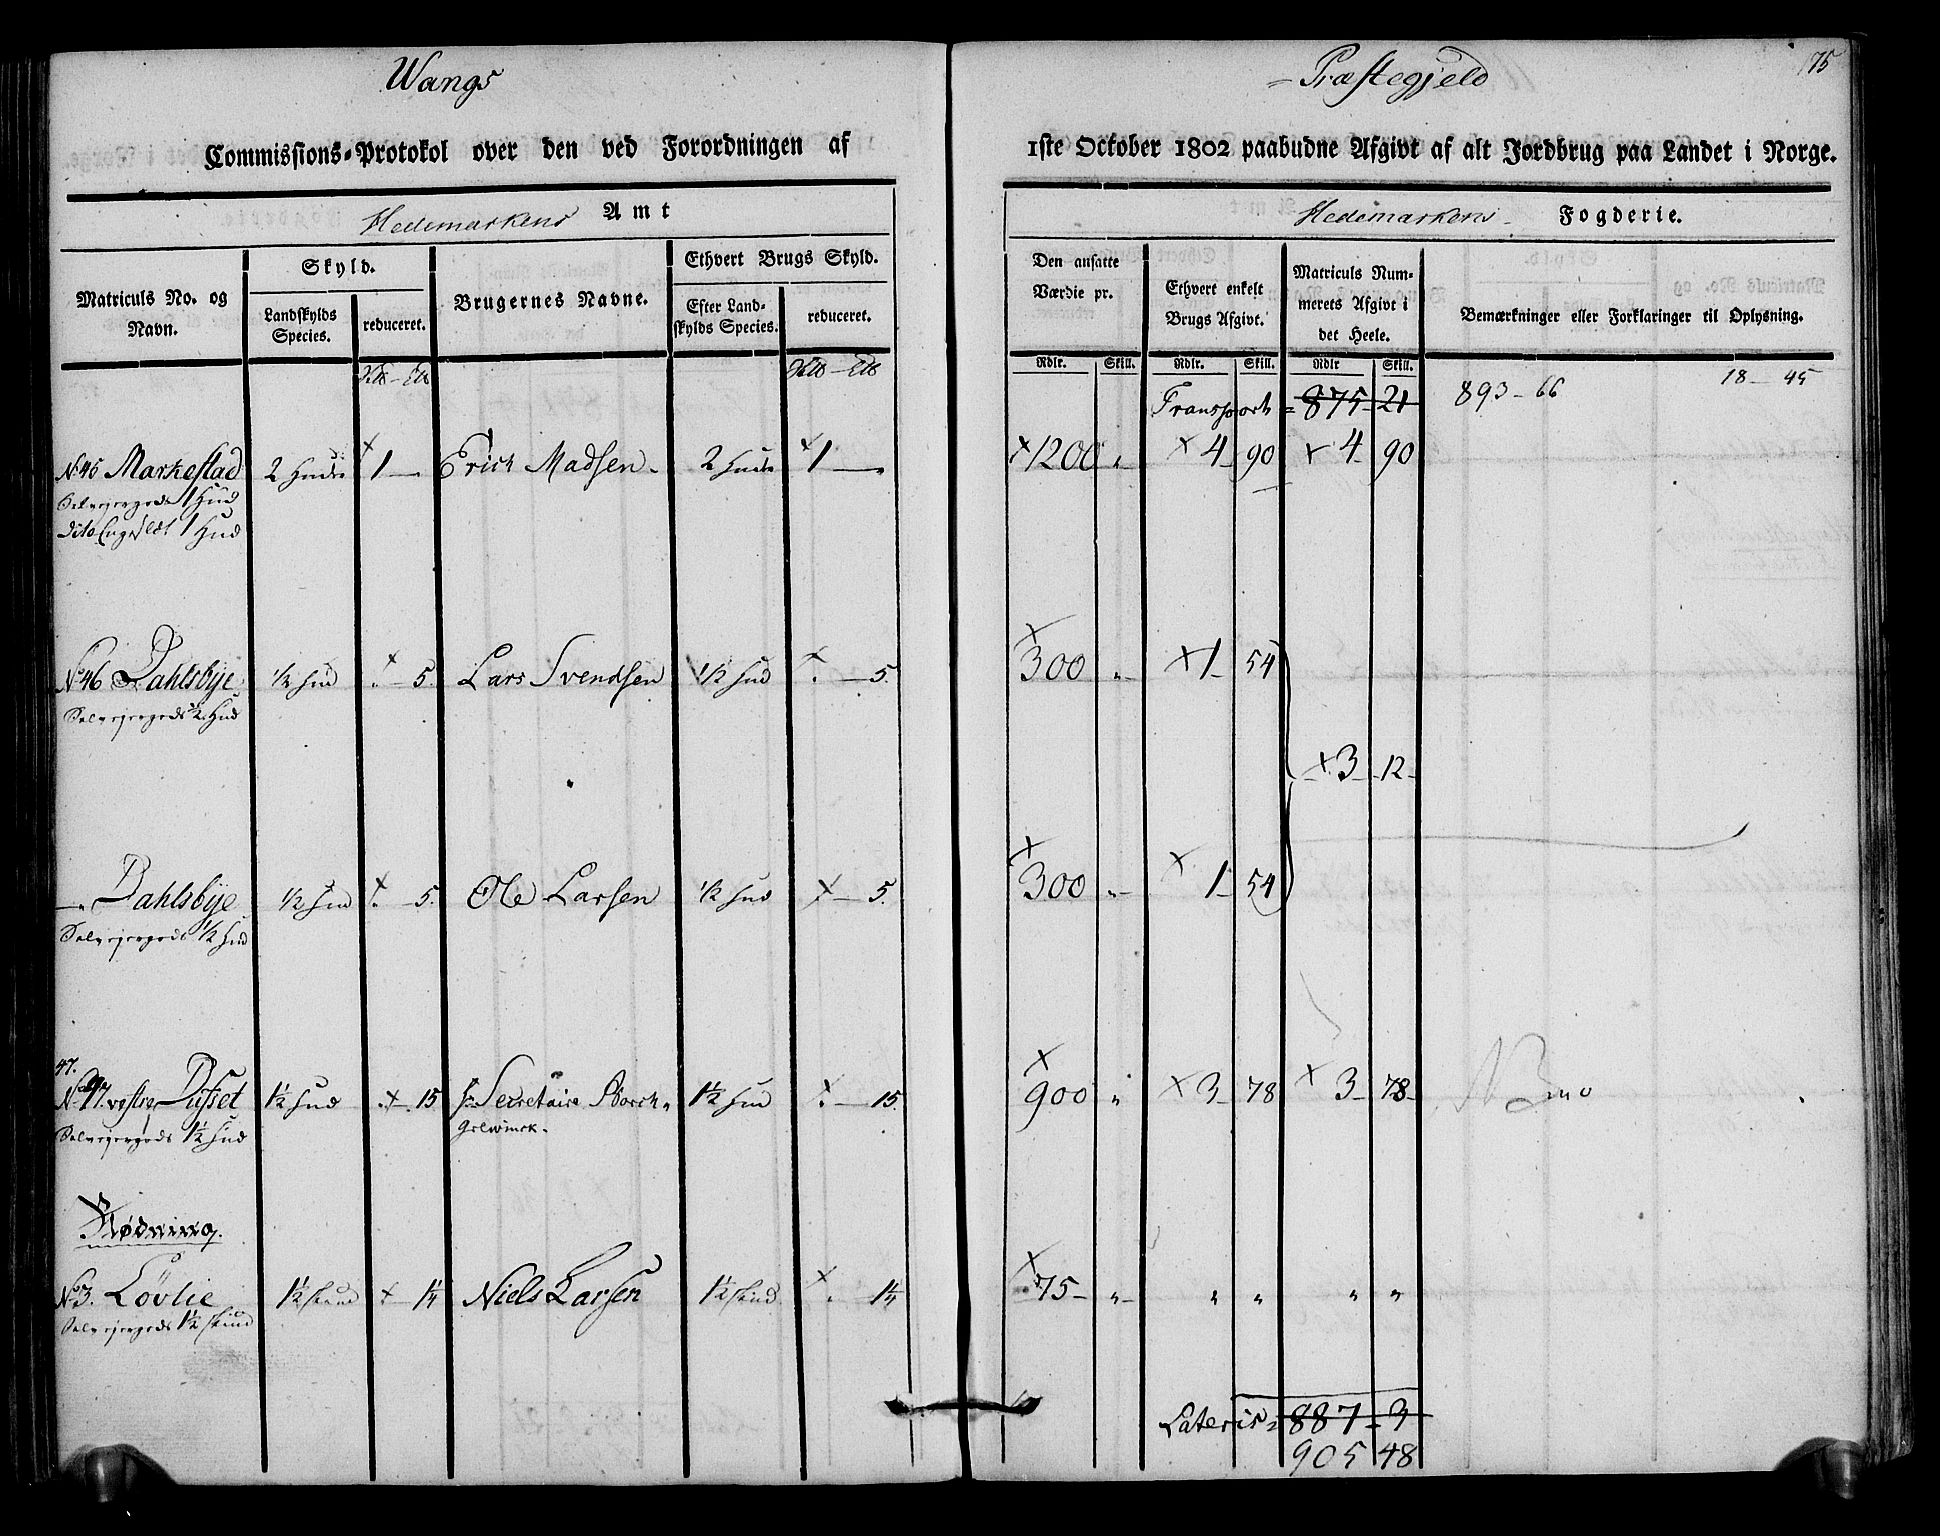 Wangs
= Præstegjeld
175
Commissions-Protokol over den ved Forordningen af
1ste October 1802 paabudne Afgivt af alt Jordbrug paa Landet i Norge.
Hedemarkens Amt
Hedemarkens Fogderie.
Matriculs No. og Navn.
Skyld.
Landskylds Species.
reduceret.
Brugernes Navne.
Ethvert Brugs Skyld.
Efter Landskylds Species.
reduceret.
Den ansatte Værdie pr.
Ethvert enkelt Brugs Afgivt.
Matriculs Nummerets Afgivt i det Heele.
Bemærkninger eller Forklaringer til Oplysning.
Rdlr. Skill. Rdlr. Skill. Rdlr Skill.
Transport = 875 - 21 893 - 66 18 - 45
No 45 Markestad 2 Huder × 1 — Erich Madsen. 2 Huder × 1 — × 1200 " × 4 - 90 × 4 - 90
Selveiergods 1 Hud
dito 1 Hud
No 46 Dahlsbye ½ Hud × " - 5. Lars Svendsen ½ Hud × " - 5. × 300 " × 1 - 54
Selveiergods ½ Hud
× 3 - 12
— " Dahlsbye ½ Hud × " - 5. Ole Larsen ½ Hud × - 5. × 300 " × 1 - 54
Selveiergods ½ Hud
47.
No 47 vestre Dufset 1½ Hud × - 15 Hr Secretaire Storch 1½ Hud × - 15. × 900 " × 3 - 78 × 3 - 78
Selveiergods 1½ Hud
Rødning.
No 3. Lövlie 1½ Skind × - 1¼ Niels Larsen 1½ Skind × - 1¼ × 75 - " " " " "
Selveiergods 1½ Skind
Lateris = 887 - 3
905 48